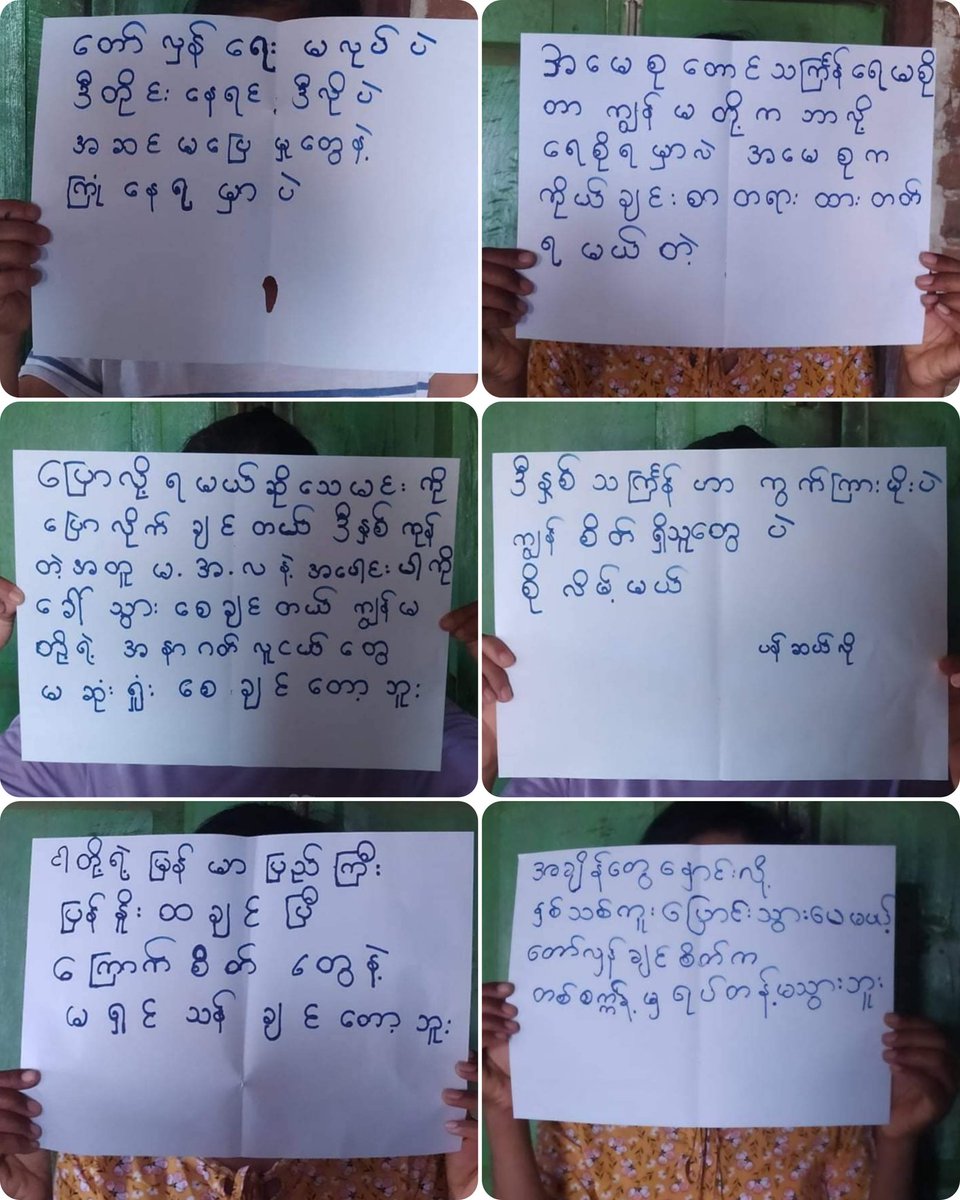 တော်လှန်ရေး မလုပ်ပဲ
ဒီတိုင်းနေရင် ဒီလိုပဲ
အဆင်မပြေမှုတွေနဲ့
ကြုံနေရမှာပဲ
အမေစုတောင်သင်္ကြန်ရေမစို
တာ ကျွန်မတို့က ဘာလို့
ရေစိုရမှာလဲ အမေစုက
ကိုယ်ချင်းစာတရားထားတတ်
ရမယ်တဲ့
ပြောလို့ရမယ်ဆိုသေမင်းကို
ပြောလိုက်ချင်တယ် ဒီနှစ်ကုန်
တဲ့အတူ မ.အ.လ နဲ့ အပေါင်းပါကို
ခေါ်သွားစေချင်တယ် ကျွန်မ
တို့ရဲ့ အနာဂတ်လူငယ်တွေ
မဆုံးရှုံးစေချင်တော့ဘူး
ဒီနှစ်သင်္ကြန်ဟာ ကွက်ကြားမိုးပဲ
ကျွန်စိတ်ရှိသူတွေပဲ
စိုလိမ့်မယ်
ပန်ဆယ်လို
ငါတို့ရဲ့ မြန်မာပြည်ကြီး
ပြန်နိုးထချင်ပြီ
ကြောက်စိတ်တွေနဲ့
မရှင်သန်ချင်တော့ဘူး
အချိန်တွေနှောင်းလို့
နှစ်သစ်ကူးပြောင်းသွားပေမယ့်
တော်လှန်ချင်စိတ်က
တစ်စက္ကန့်မှ ရပ်တန့်မသွားဘူး